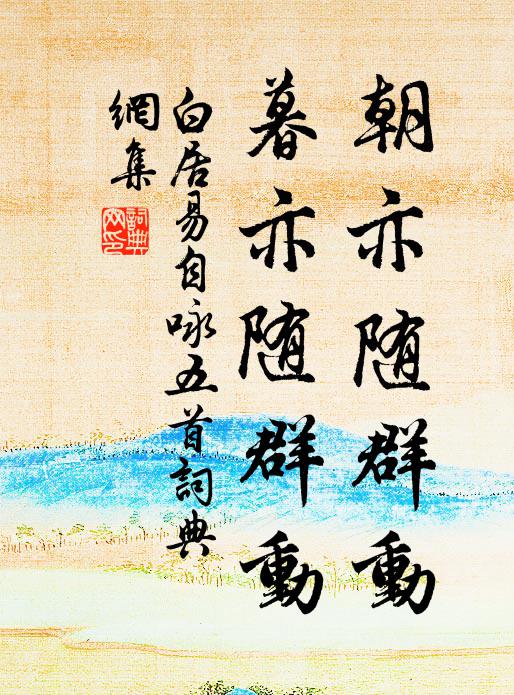 朝亦随群動
暮亦随群動
白居易自咏五首詞典
網集
詞典
网印